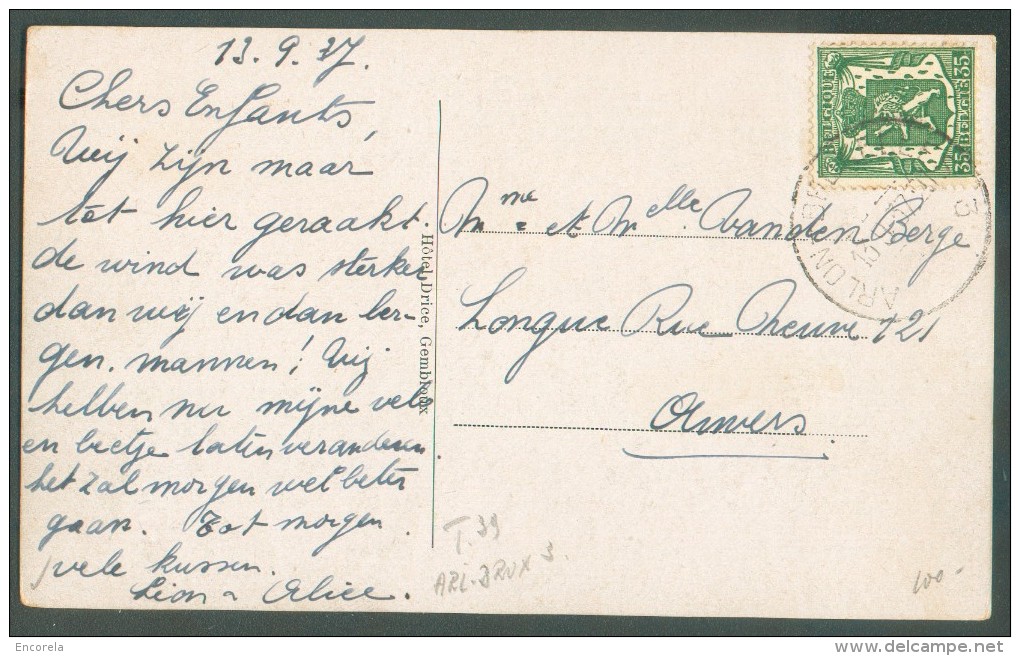 13.9.37.
Chers Enfants,
Wij zijn maar
tot hier geraakt
de wind was sterker
dan wij en dan ber-
gen, mannen! Wij
hebben nu mijne velo
en beetje laten veranderen
het zal morgen wel beter
gaan. Tot morgen
vele kussen.
Léon & Alice.
• Hôtel Drice, Gembloux
BELGIQUE 35
35 BELGIE
ARLON
3
13
Mme et Melle Vanden Berge
Longue Rue Neuve 121
Anvers
T.39
ARL-BRUX 3.
100-
Encorela
delcampe.net